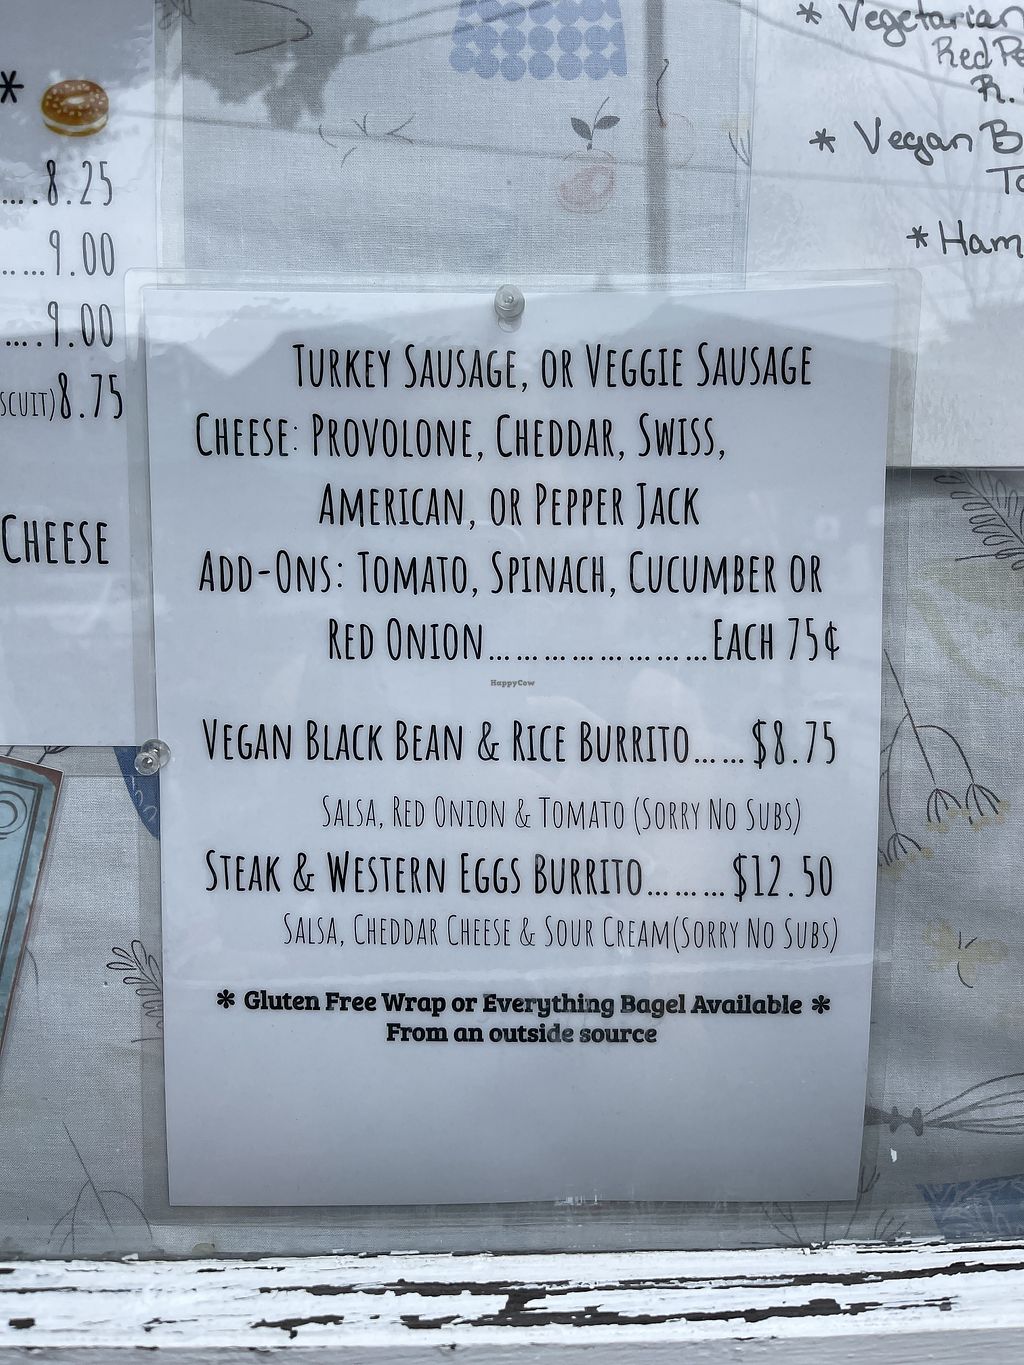 *
....8.25
.....9.00
....9.00
SCUIT)8.75
CHEESE
* Vegetarian
Red
R.
* Vegan B
To
* Ham
TURKEY SAUSAGE, OR VEGGIE SAUSAGE
CHEESE: PROVOLONE, CHEDDAR, SWISS,
AMERICAN, OR PEPPER JACK
ADD-ONS: TOMATO, SPINACH, CUCUMBER OR
RED ONION........................EACH 75¢
HappyCow
VEGAN BLACK BEAN & RICE BURRITO......$8.75
SALSA, RED ONION & TOMATO (SORRY NO SUBS)
STEAK & WESTERN EGGS BURRITO.........$12.50
SALSA, CHEDDAR CHEESE & SOUR CREAM(SORRY NO SUBS)
* Gluten Free Wrap or Everything Bagel Available *
From an outside source